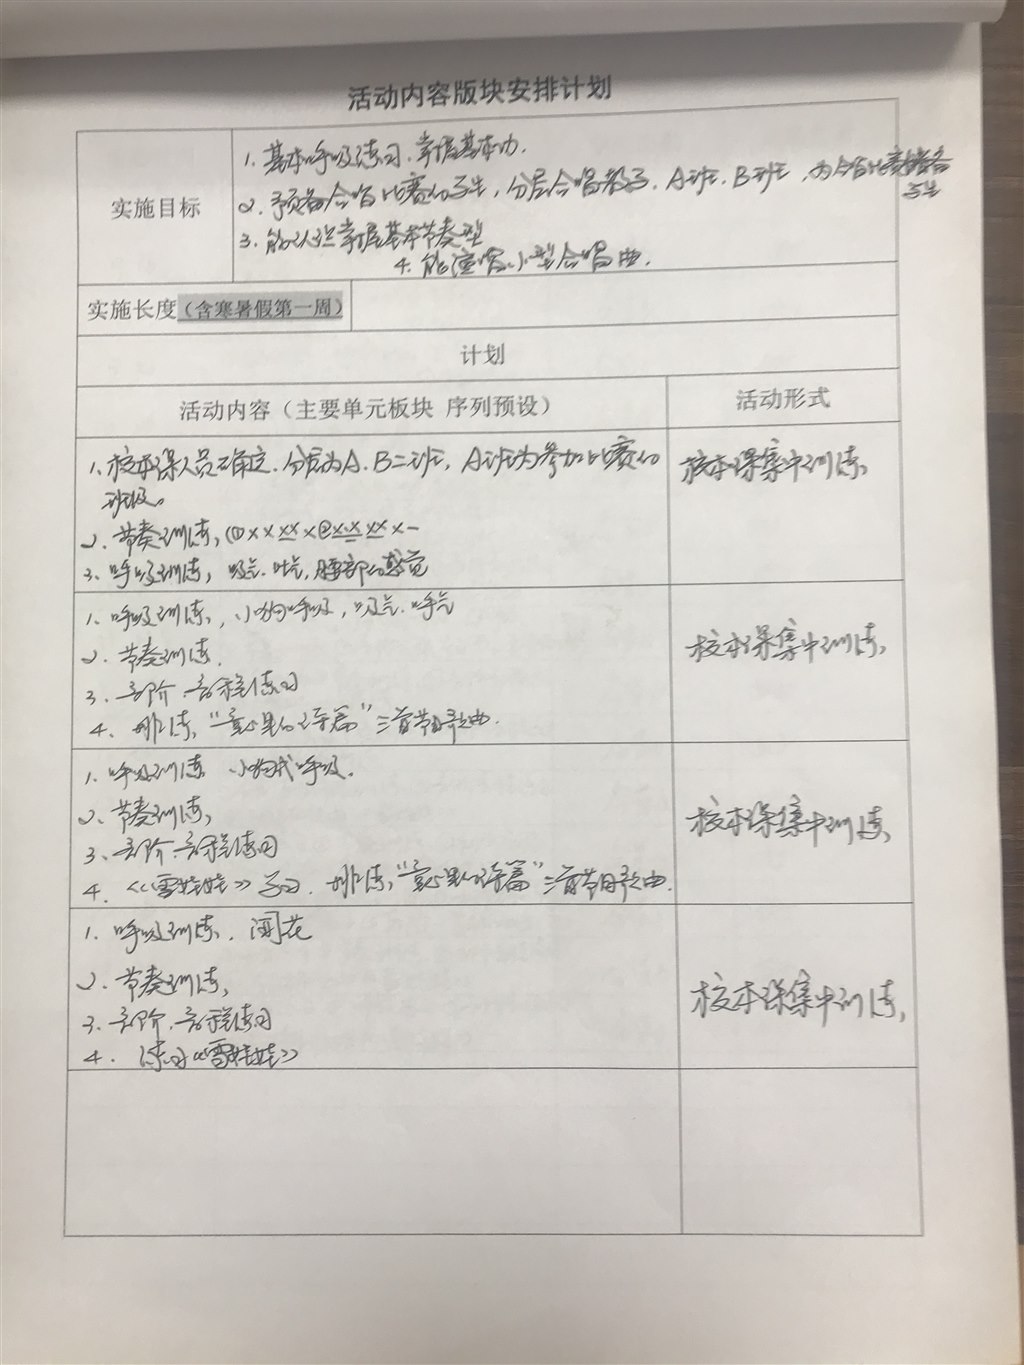 活动内容版块安排计划
实施目标
1. 基本呼吸练习、掌握基本功.
2. 预备合唱比赛的学生, 分层合唱教学. A班. B班, 为合唱比赛储备
学生
3. 能认识掌握基本节奏型
4. 能演唱小型合唱曲.
实施长度(含寒暑假第一周)
计划
活动内容(主要单元板块 序列预设) 活动形式
1. 校本课人员确定. 分层为A. B二班, A班为参加比赛的 校本课集中训练
班级。
2. 节奏训练, ①×× ×× ×②×·× ×× ×—
3. 呼吸训练, 吸气. 吐气, 腰部的感觉
1. 呼吸训练, 小狗呼吸, 吸气. 呼气
2. 节奏训练. 校本课集中训练
3. 音阶. 音程练习
4. 排练, "童心里的诗篇"三首节目歌曲.
1. 呼吸训练 小狗式呼吸.
2. 节奏训练, 校本课集中训练
3. 音阶. 音程练习
4. 《雪娃娃》学习. 排练, "童心里的诗篇"三首节目歌曲.
1. 呼吸训练. 闻花
2. 节奏训练, 校本课集中训练,
3. 音阶. 音程练习
4. 练习《雪娃娃》